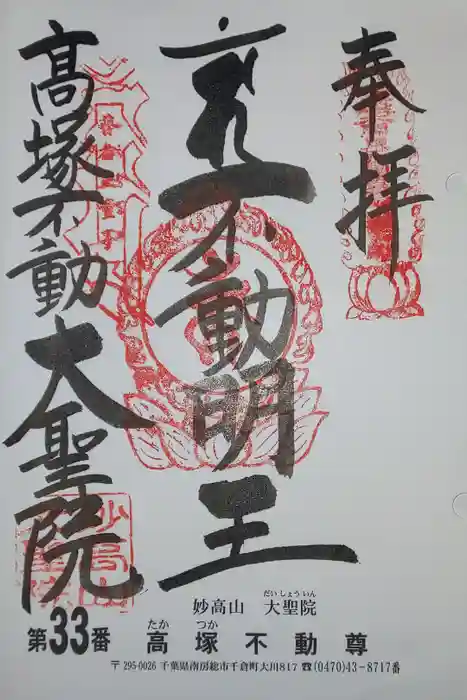 奉拝
不動明王
高塚不動 大聖院
妙高山 大聖院
だいしょういん
第33番 高塚不動尊
たか つか
〒295-0026 千葉県南房総市千倉町大川817 ☎(0470)43-8717番